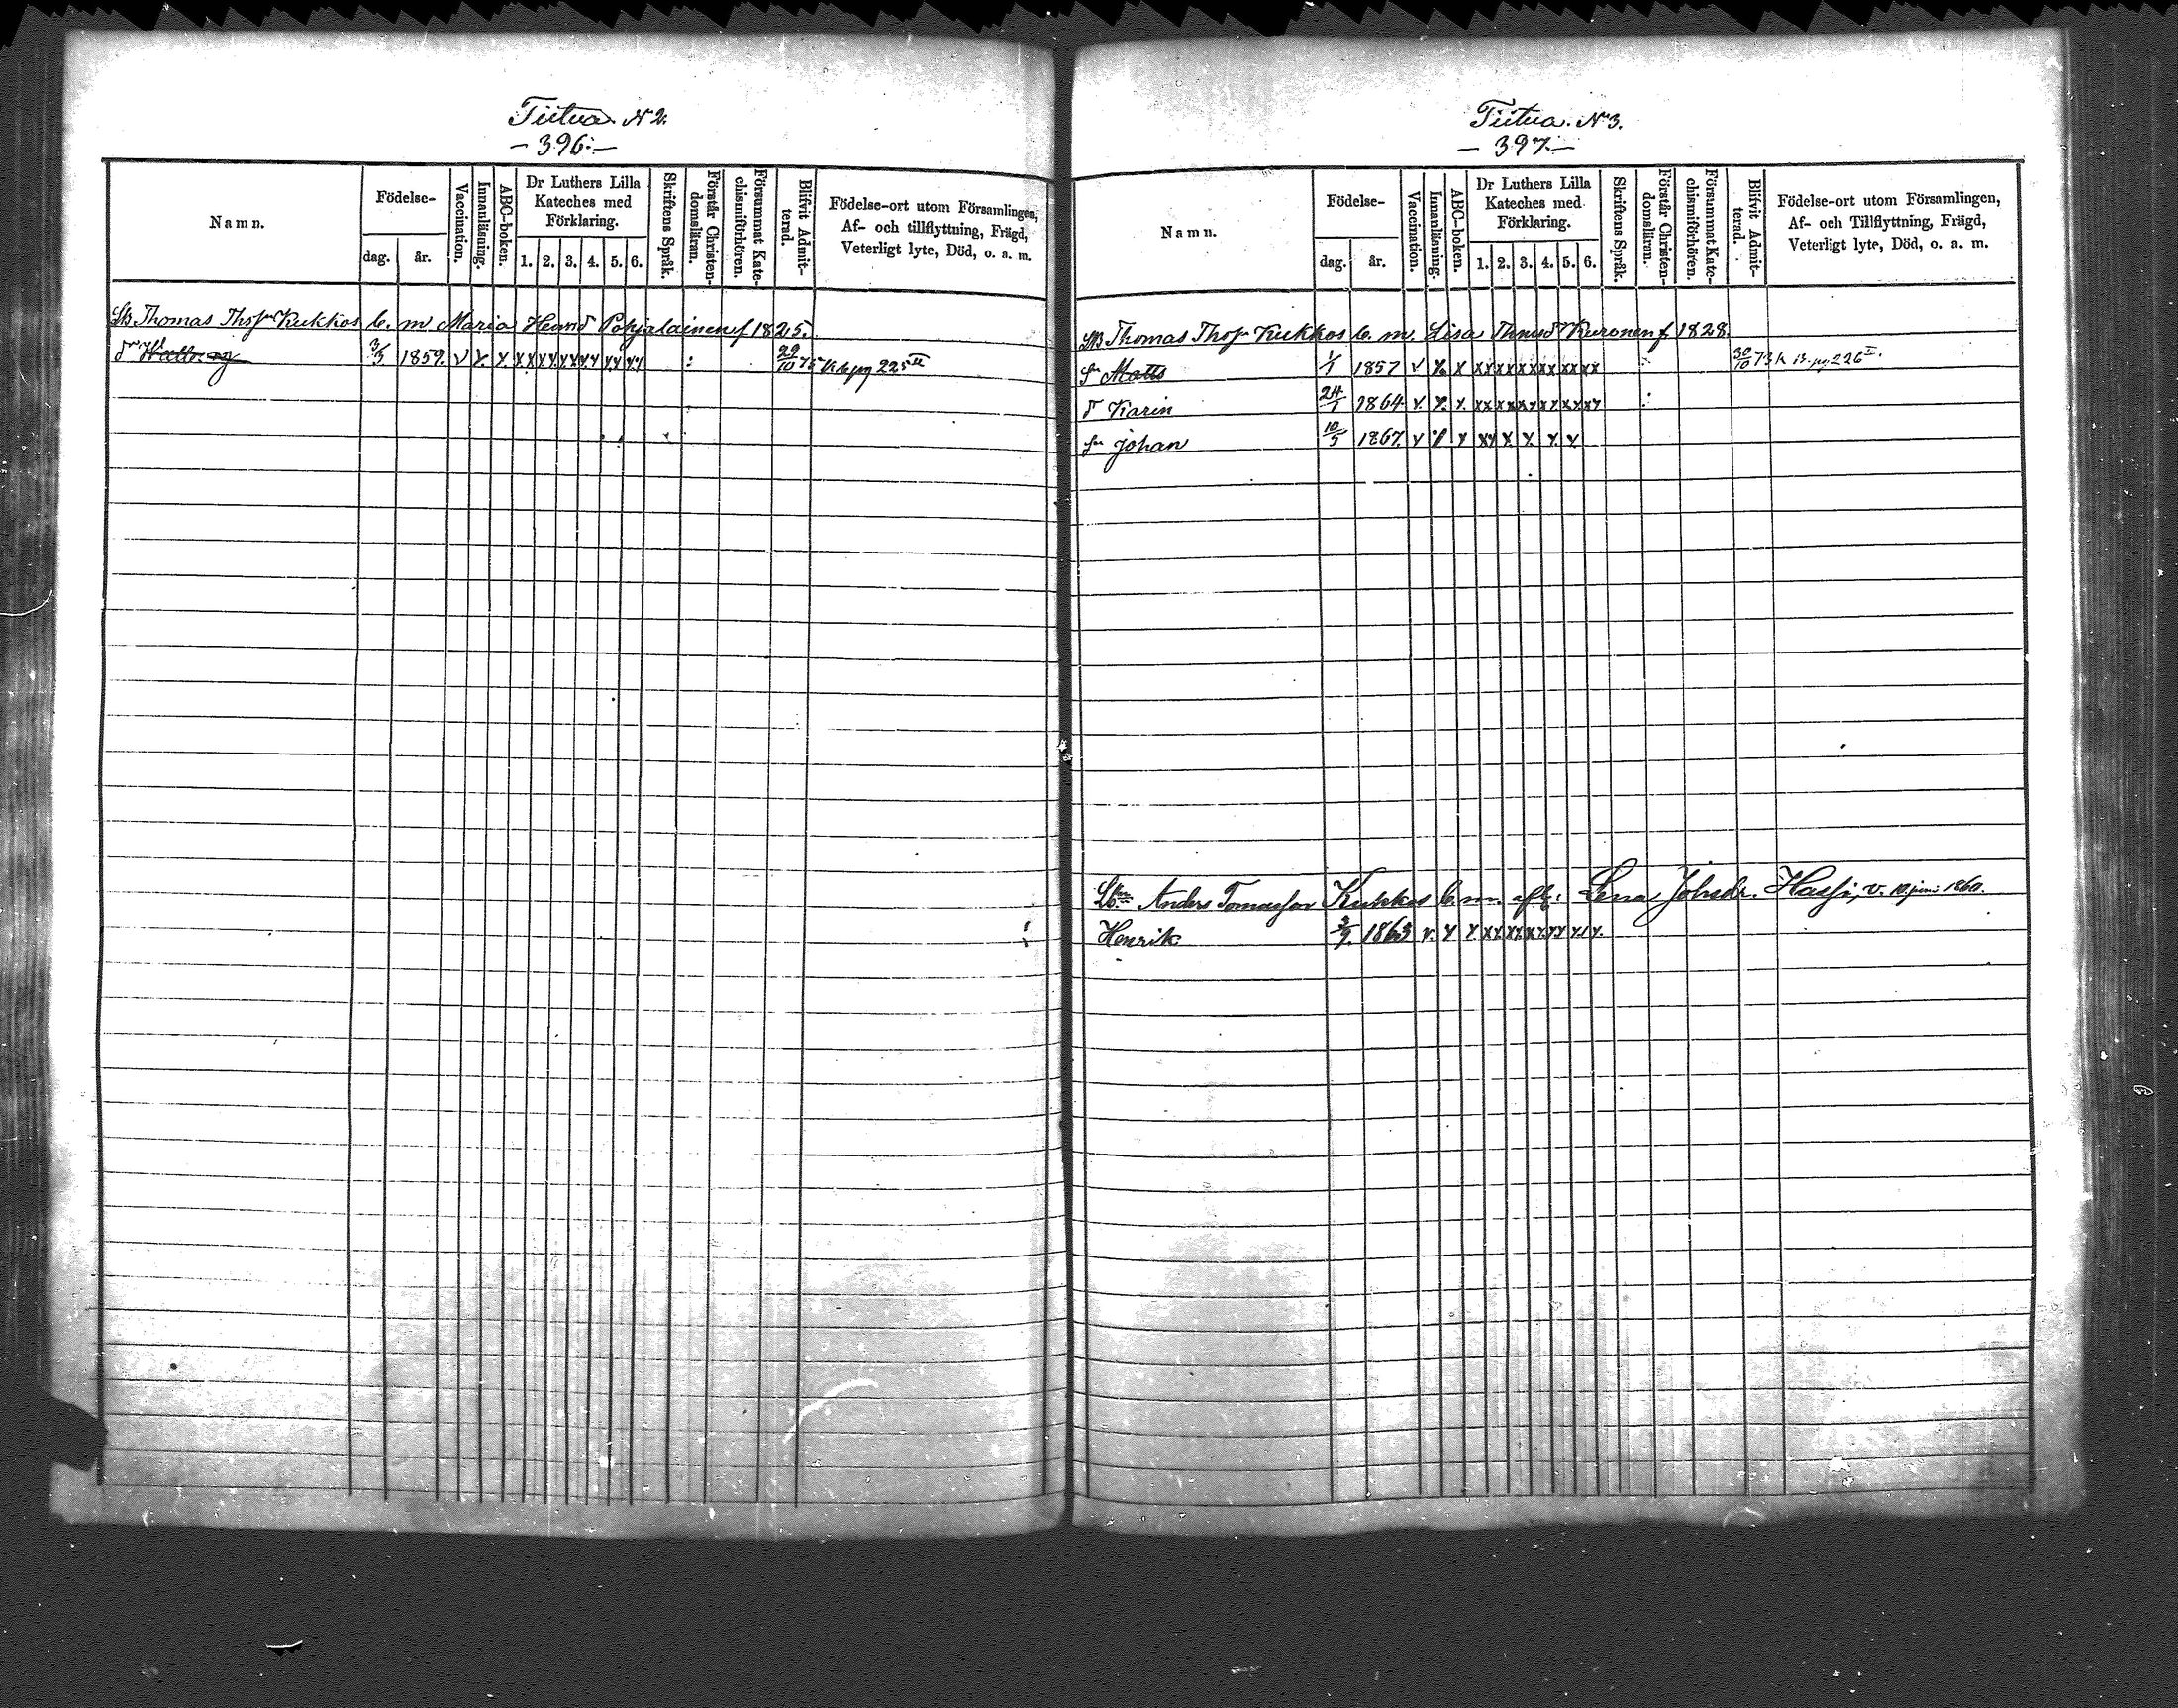 Tiitua. N 2.
– 396 –
Namn.
Födelse-
dag.
år.
Vaccination.
Innanläsning.
ABC-boken.
Dr Luthers Lilla
Kateches med
Förklaring.
1. 2. 3. 4. 5. 6.
Skriftens Språk.
Förstår Christen-
domsläran.
Försummat Kate-
chismiförhören.
Blifvit Admit-
terad.
Födelse-ort utom Församlingen,
Af- och tillflyttning, Frägd,
Veterligt lyte, Död, o. a. m.
Thomas Kukkos b. m Maria Pohjalainen f 1825.
dr Walborg 3/3 1859. v x. x. x x x x x x x x x x x x : 29/10 75 pg 225 II
Tiitua. N 3.
– 397 –
Namn.
Födelse-
dag.
år.
Vaccination.
Innanläsning.
ABC-boken.
Dr Luthers Lilla
Kateches med
Förklaring.
1. 2. 3. 4. 5. 6.
Skriftens Språk.
Förstår Christen-
domsläran.
Försummat Kate-
chismiförhören.
Blifvit Admit-
terad.
Födelse-ort utom Församlingen,
Af- och Tillflyttning, Frägd,
Veterligt lyte, Död, o. a. m.
Thomas Kukkos b. m. Lisa Kuronen f. 1828.
Sn Matts 1/1 1857 v x x x x x x x x x x x x x x : 30/10 73 pg 226 II.
d Karin 24/1 1864 v. x. x. x x x x x x x x x x x x :
Sn Johan 10/5 1867. v x x x x x x x x
Anders Tomasson Kukkos b. m. afl: Lena Johsdr. Hassi, v. 10. juni 1860.
Henrik 3/7. 1863 v. x x x x x x x x x x x x x